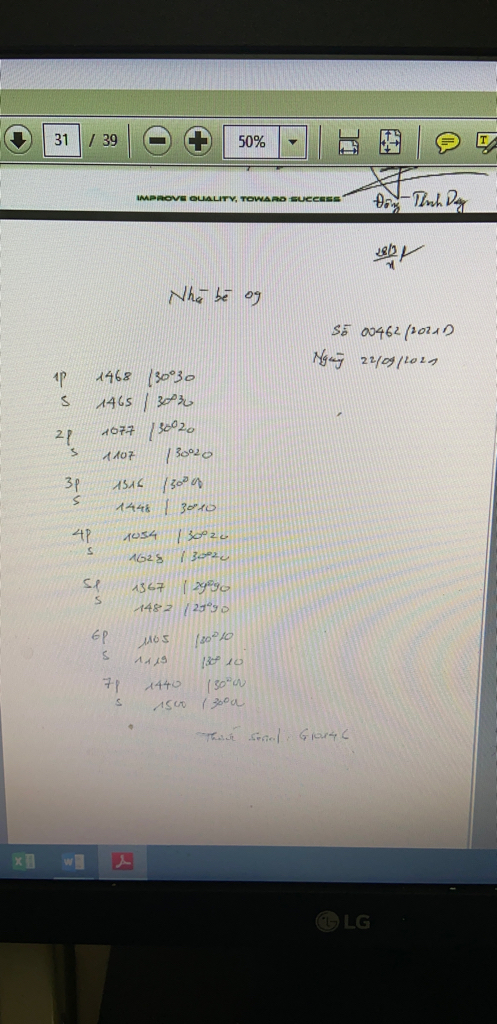 31 / 39
50%
T
IMPROVE QUALITY, TOWARD SUCCESS
Nhà bè 09
Số 00462/2021D
Ngày 22/09/2021
1P 1468 / 30°30
S 1465 / 30°30
2P 1077 / 30°20
S 1107 / 30°20
3P 1516 / 30°00
S 1448 / 30°10
4P 1054 / 30°20
S 1028 / 30°20
5P 1367 / 29°90
S 1482 / 29°90
6P 1105 / 30°10
S 1119 / 30°10
7P 1440 / 30°00
S 1500 / 30°00
LG